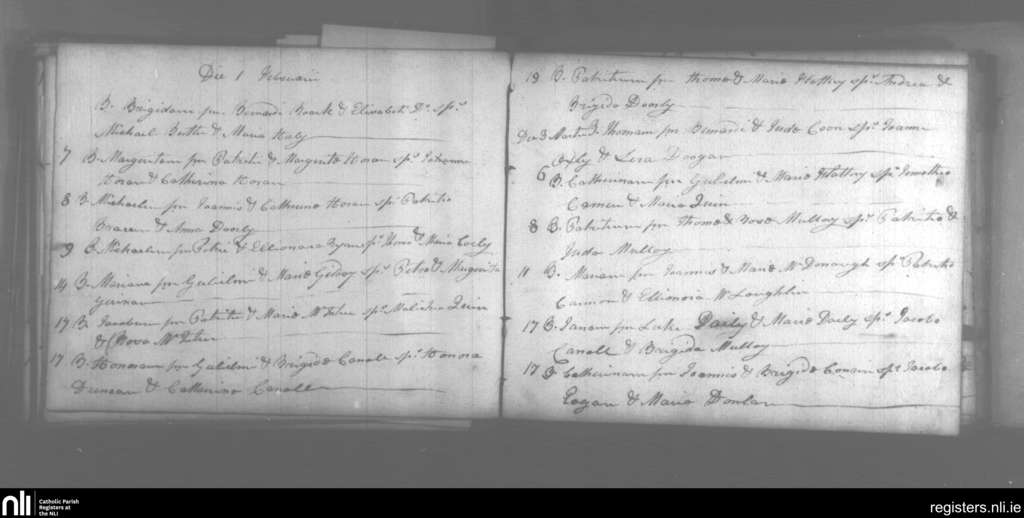 Die 1 Februarii
B. Brigidam pm Bernardi Roark & Elizabeth Do. spr.
Michael Buttler & Maria Haly
7 B. Margeritam pm Patritii & Margerita Horan spr.
Horan & Catherina Horan
8 B. Michaelem pm Joannis & Catherina Horan spr. Patritio
Bracen & Anna Doorly
9 B. Michaelem pm Petri & Ellionora Ryan spr. Thoma & Maria Coely
14 B. Mariana pm Gulielmi & Maria Gilroy spr. Petro & Margerita
17 B. Jacobum pm Patritii & Maria spr. Malichia Quinn
& Rosa
17 B. Honoram pm Gulielmi & Brigida Canolle spr. Honora
Duncan & Catherina Canolle
19 B. Patritium pm Thoma & Maria Hattery spr. Andrea &
Brigida Doorly
Die 3 Martii B. Thomam pm Bernardi & Juda Coon spr. Joanne
& Doogan
6 B. Catherinam pm Gulielmi & Maria Slattery spr. Timotheo
& Maria Quin
8 B. Patritium pm Thoma & Rosa Mulloy spr. Patritio &
Juda Mulloy
11 B. Mariam pm Joannis & Maria McDonough spr. Patritio
Cannon & Ellionora McLoughlin
17 B. pm Luke Daily & Maria Daily spr. Jacobo
Canolle & Brigida Mulloy
17 B. Catherinam pm Joannis & Brigida spr. Jacobo
Eogan & Maria Donlan
nli
Catholic Parish
Registers at
the NLI
registers.nli.ie